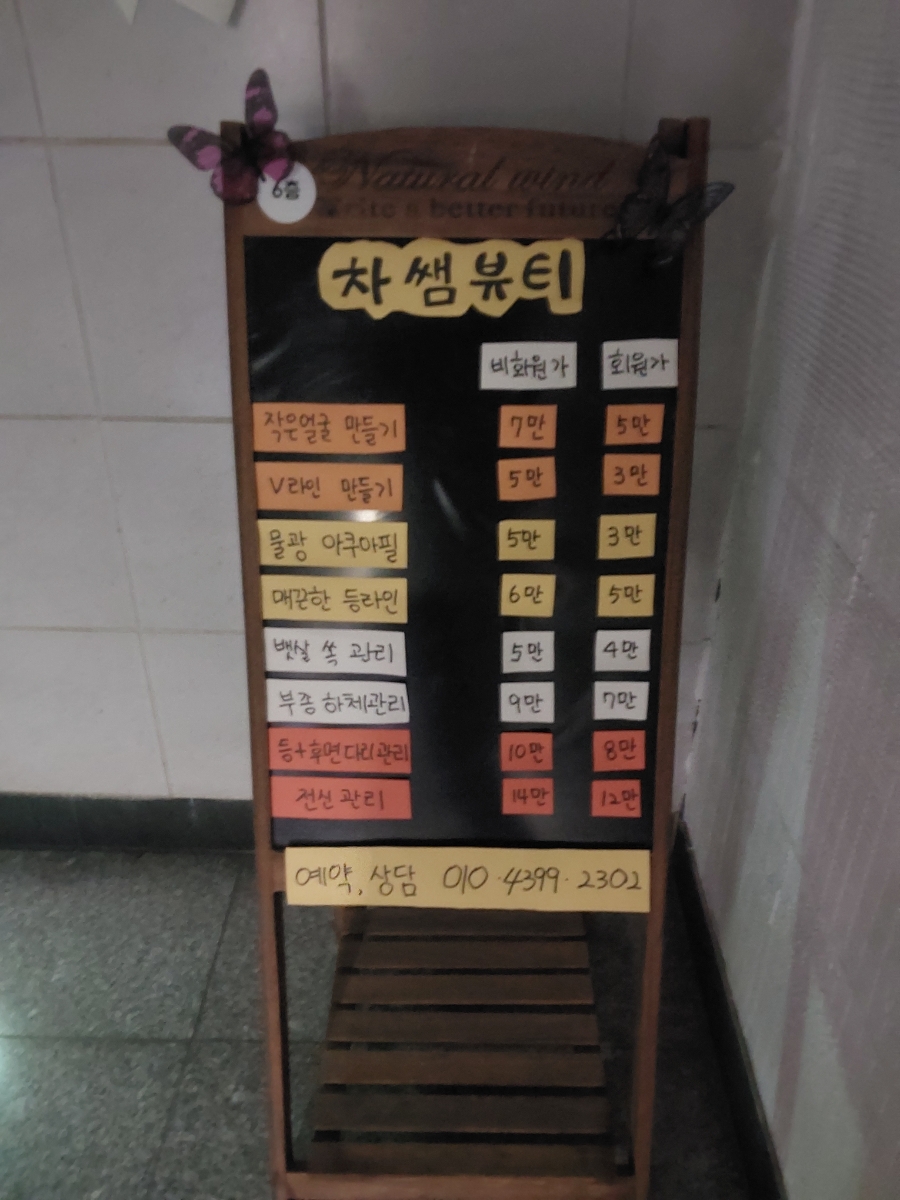 Natural wind
6층
write a better future
차쌤뷰티
비회원가 회원가
작은얼굴 만들기 7만 5만
V라인 만들기 5만 3만
물광 아쿠아필 5만 3만
매끈한 등라인 6만 5만
뱃살 쏙 관리 5만 4만
부종 하체관리 9만 7만
등+후면다리관리 10만 8만
전신관리 14만 12만
예약, 상담 010·4399·2302